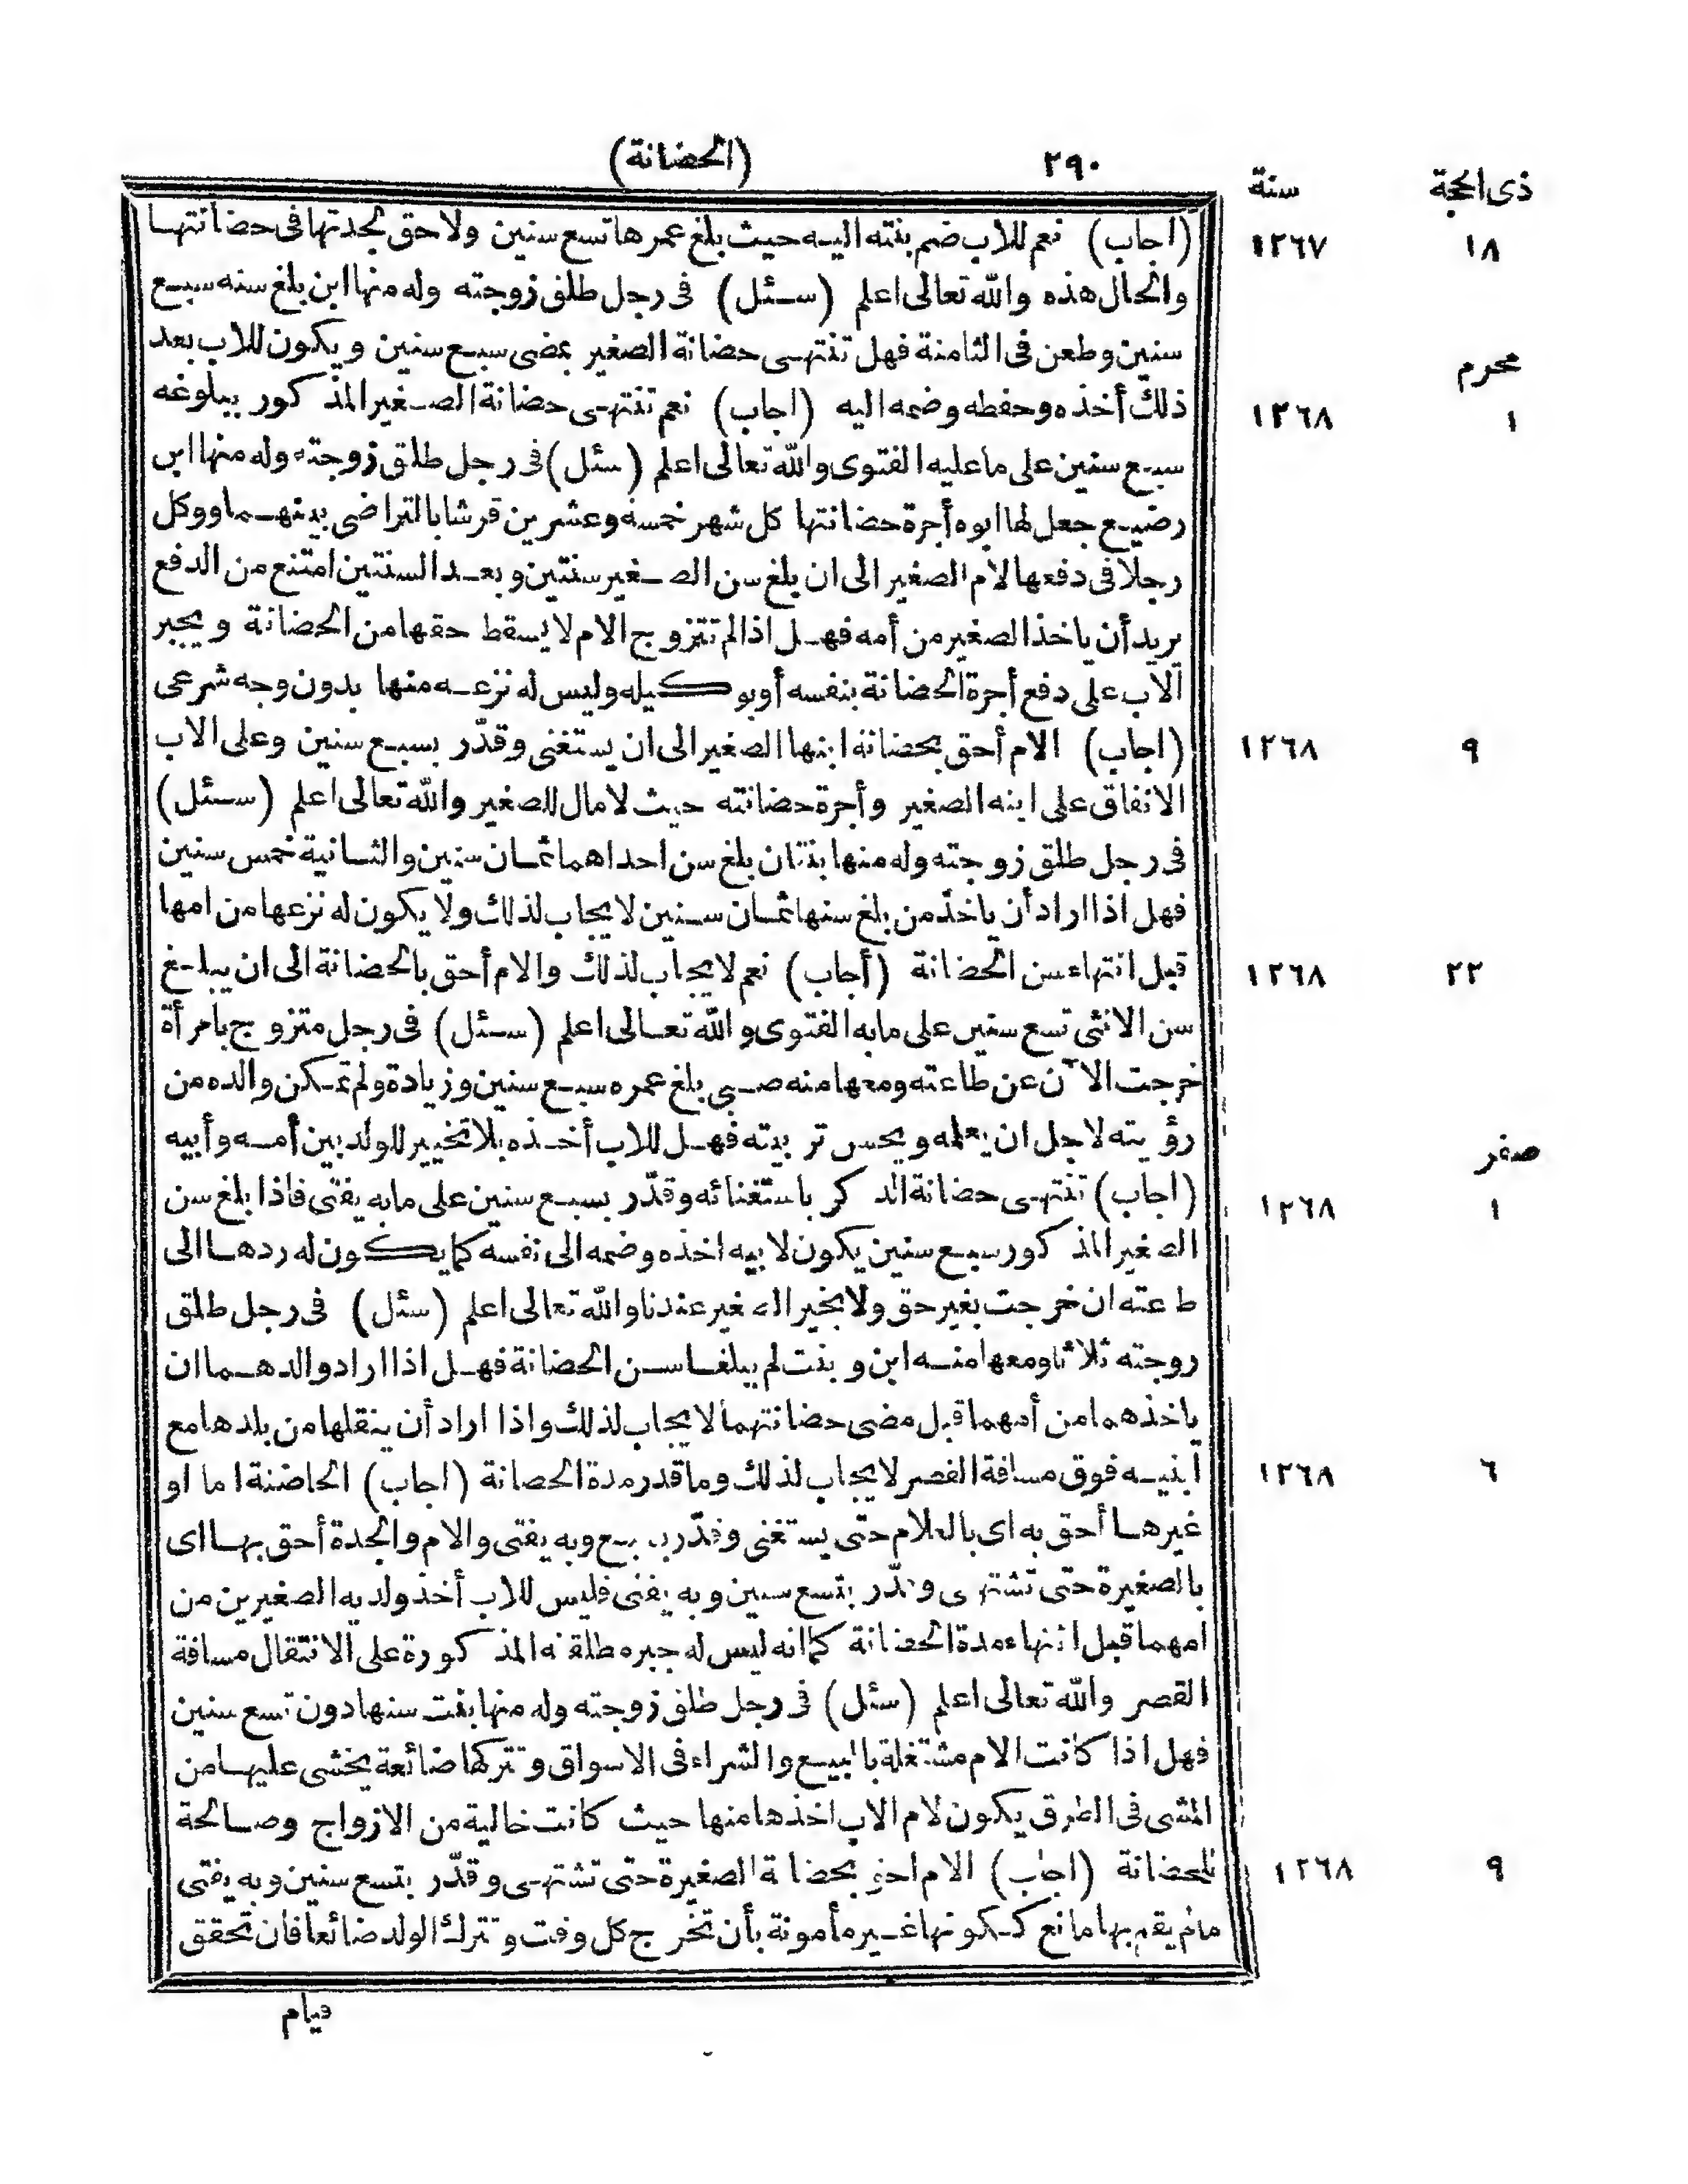 (الحضانة) ٢٩٠
ذى الحجة سنة
(اجاب) نعم للاب ضم بنته اليه حيث بلغ عمرها تسع سنين ولا حق لجدتها فى حضانتها
١٨ ١٢٦٧
والحال هذه والله تعالى اعلم (سئل) فى رجل طلق زوجته وله منها ابن بلغ سنه سبع
سنين وطعن فى الثامنة فهل تنتهى حضانة الصغير بمضى سبع سنين ويكون للاب بعد
محرم
ذلك أخذه وحفظه وضمه اليه (اجاب) نعم تنتهى حضانة الصغير المذكور ببلوغه
١ ١٢٦٨
سبع سنين على ما عليه الفتوى والله تعالى اعلم (سئل) فى رجل طلق زوجته وله منها ابن
رضيع جعل لها ابوه أجرة حضانتها كل شهر خمسة وعشرين قرشا بالتراضى بينهما ووكل
رجلا فى دفعها لام الصغير الى ان بلغ سن الصغير سنتين وبعد السنتين امتنع من الدفع
يريد أن ياخذ الصغير من أمه فهل اذا لم تتزوج الام لا يسقط حقها من الحضانة ويجبر
الاب على دفع أجرة الحضانة بنفسه أو بوكيله وليس له نزعه منها بدون وجه شرعى
(اجاب) الام أحق بحضانة ابنها الصغير الى ان يستغنى وقدّر بسبع سنين وعلى الاب
٩ ١٢٦٨
الانفاق على ابنه الصغير وأجرة حضانته حيث لا مال للصغير والله تعالى اعلم (سئل)
فى رجل طلق زوجته وله منها بنتان بلغ سن احداهما ثمان سنين والثانية خمس سنين
فهل اذا اراد أن ياخذ من بلغ سنها ثمان سنين لا يجاب لذلك ولا يكون له نزعها من امها
قبل انتهاء سن الحضانة (أجاب) نعم لا يجاب لذلك والام أحق بالحضانة الى ان يبلغ
٢٢ ١٢٦٨
سن الانثى تسع سنين على ما به الفتوى والله تعالى اعلم (سئل) فى رجل متزوج بامرأة
خرجت الآن عن طاعته ومعها منه صبى بلغ عمره سبع سنين وزيادة ولم تمكن والده من
رؤيته لاجل ان يعلمه ويحسن تربيته فهل للاب أخذه بلا تخيير للولد بين أمه وأبيه
صفر
(اجاب) تنتهى حضانة الذكر باستغنائه وقدّر بسبع سنين على ما به يفتى فاذا بلغ سن
١ ١٢٦٨
الصغير المذكور سبع سنين يكون لابيه اخذه وضمه الى نفسه كما يكون له ردها الى
طاعته ان خرجت بغير حق ولا يخير الصغير عندنا والله تعالى اعلم (سئل) فى رجل طلق
زوجته ثلاثا ومعها منه ابن وبنت لم يبلغا سن الحضانة فهل اذا اراد والدهما ان
ياخذهما من أمهما قبل مضى حضانتهما لا يجاب لذلك واذا اراد أن ينقلها من بلدها مع
ابنيه فوق مسافة القصر لا يجاب لذلك وما قدر مدة الحضانة (اجاب) الحاضنة اما او
٦ ١٢٦٨
غيرها أحق به اى بالغلام حتى يستغنى وقدّر بسبع وبه يفتى والام والجدة أحق بها اى
بالصغيرة حتى تشتهى وقدّر بتسع سنين وبه يفتى فليس للاب أخذ ولديه الصغيرين من
امهما قبل انتهاء مدة الحضانة كما انه ليس له جبر مطلقته المذكورة على الانتقال مسافة
القصر والله تعالى اعلم (سئل) فى رجل طلق زوجته وله منها بنت سنها دون تسع سنين
فهل اذا كانت الام مشتغلة بالبيع والشراء فى الاسواق وتتركها ضائعة يخشى عليها من
المشى فى الطرق يكون لام الاب اخذها منها حيث كانت خالية من الازواج وصالحة
للحضانة (اجاب) الام احق بحضانة الصغيرة حتى تشتهى وقدّر بتسع سنين وبه يفتى
٩ ١٢٦٨
ما لم يقم بها مانع ككونها غير مأمونة بأن تخرج كل وقت وتترك الولد ضائعا فان تحقق
قيام